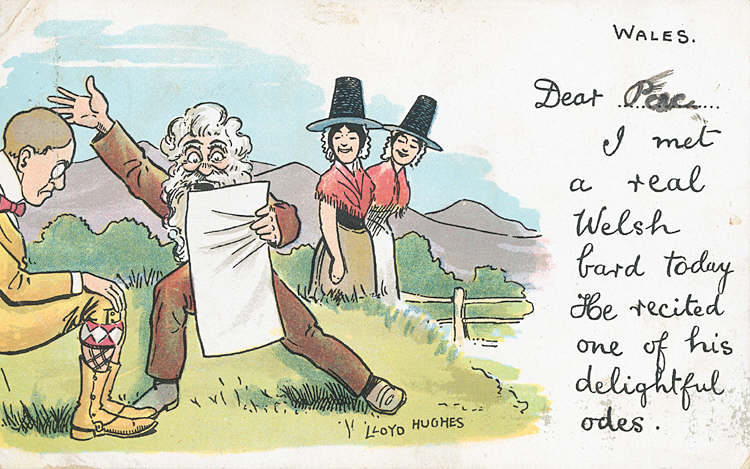 WALES.
Dear
I met
a real
Welsh
bard today
He recited
one of his
delightful
odes.
LLOYD HUGHES